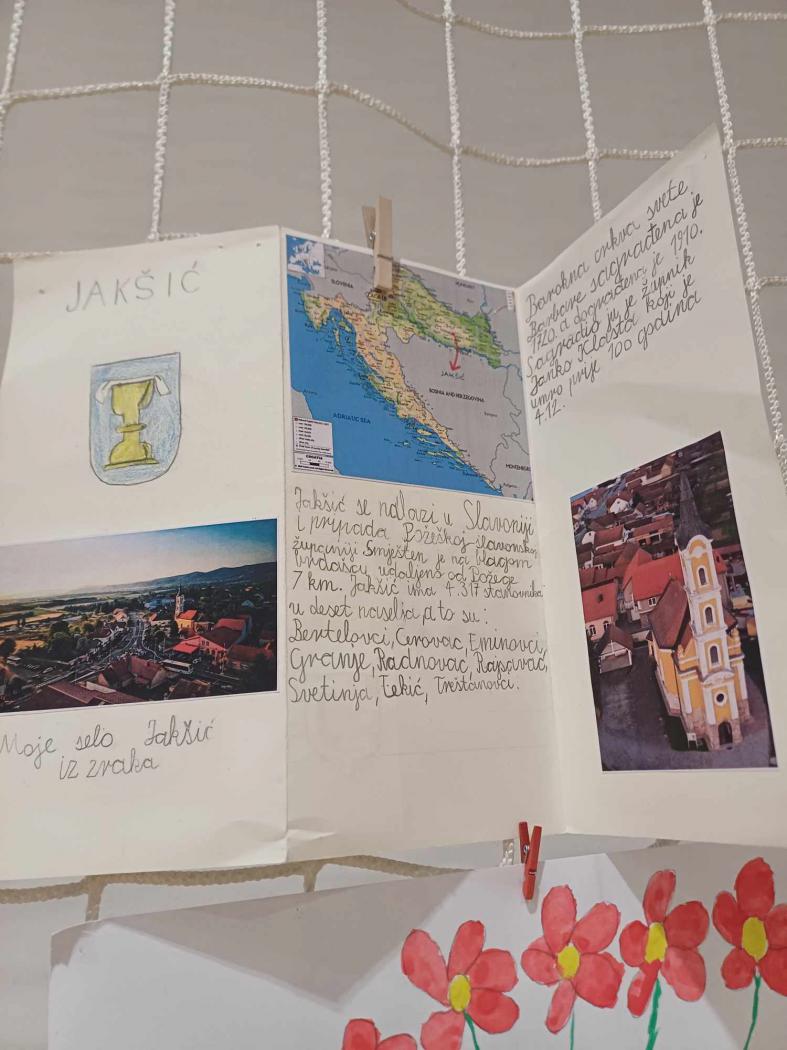 JAKŠIĆ
Moje selo Jakšić
iz zraka
SLOVENIA
HUNGARY
JAKŠIĆ
BOSNIA AND HERZEGOVINA
ADRIATIC SEA
CROATIA
MONTENEGRO
Jakšić se nalazi u Slavoniji
i pripada Požeškoj-slavonskoj
županiji Smješten je na blagom
udaljeno od Požege
7 km. Jakšić ima 4.317 stanovnika
u deset naselja, a to su:
Bertelovci, Cerovac, Eminovci,
Granje, Radnovac, Rajsavac,
Svetinja, Tekić, Treštanovci.
Barokna crkva svete
Barbare sagrađena je
1720. a dograđena je 1910.
Sagradio ju je župnik
Janko Klaista koji je
umro prije 100 godina
4.12.